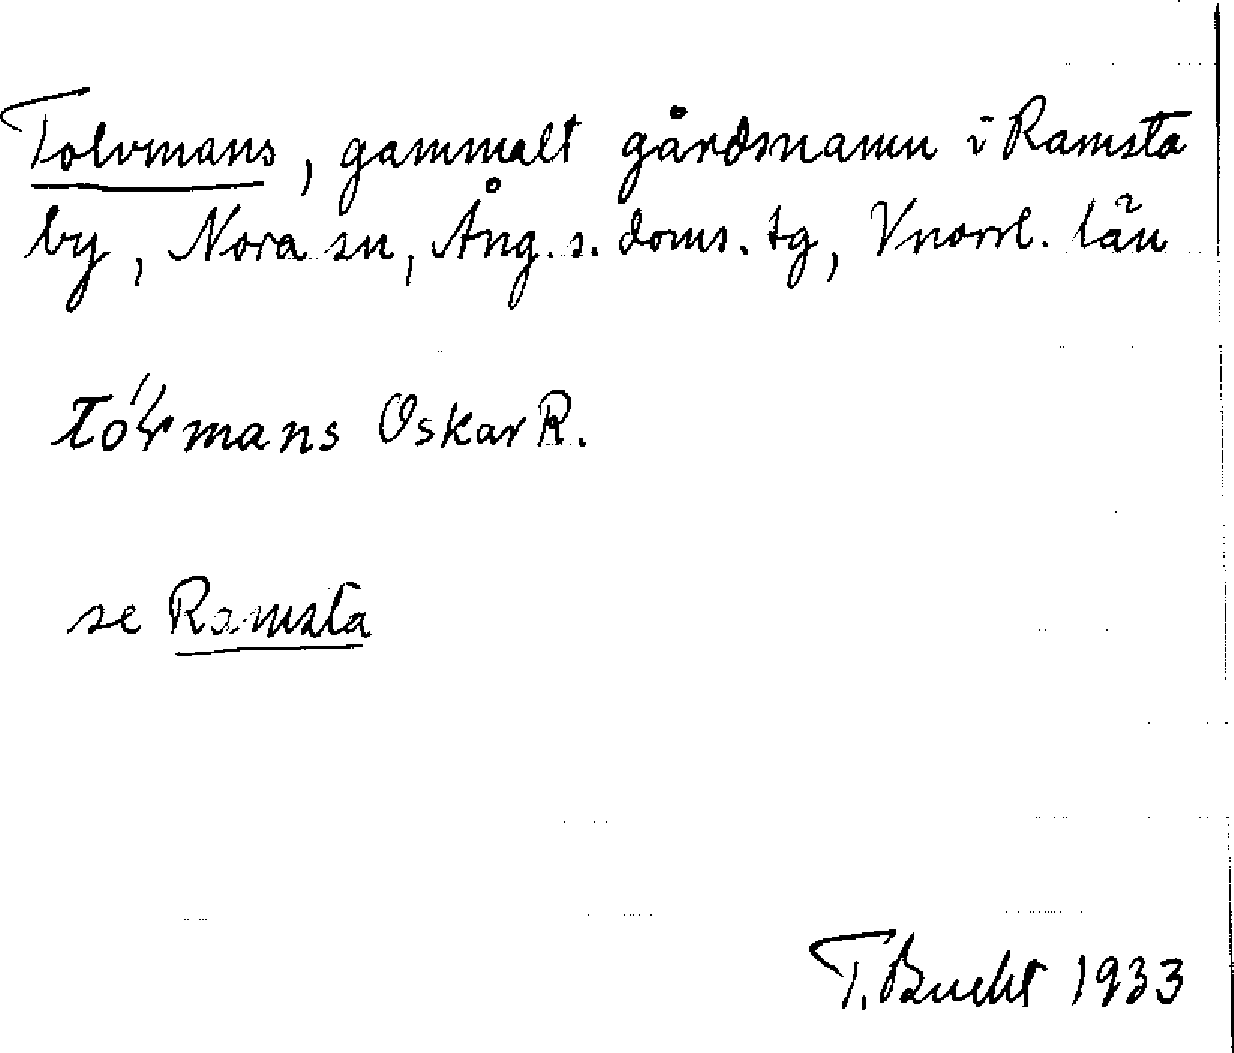 Tolvmans, gammalt gårdsnamn i Ramsta
by, Nora sn, Ång. s. doms. tg, Vnorrl. län
Oskar R.
se Ramsta
T. Bucht 1933